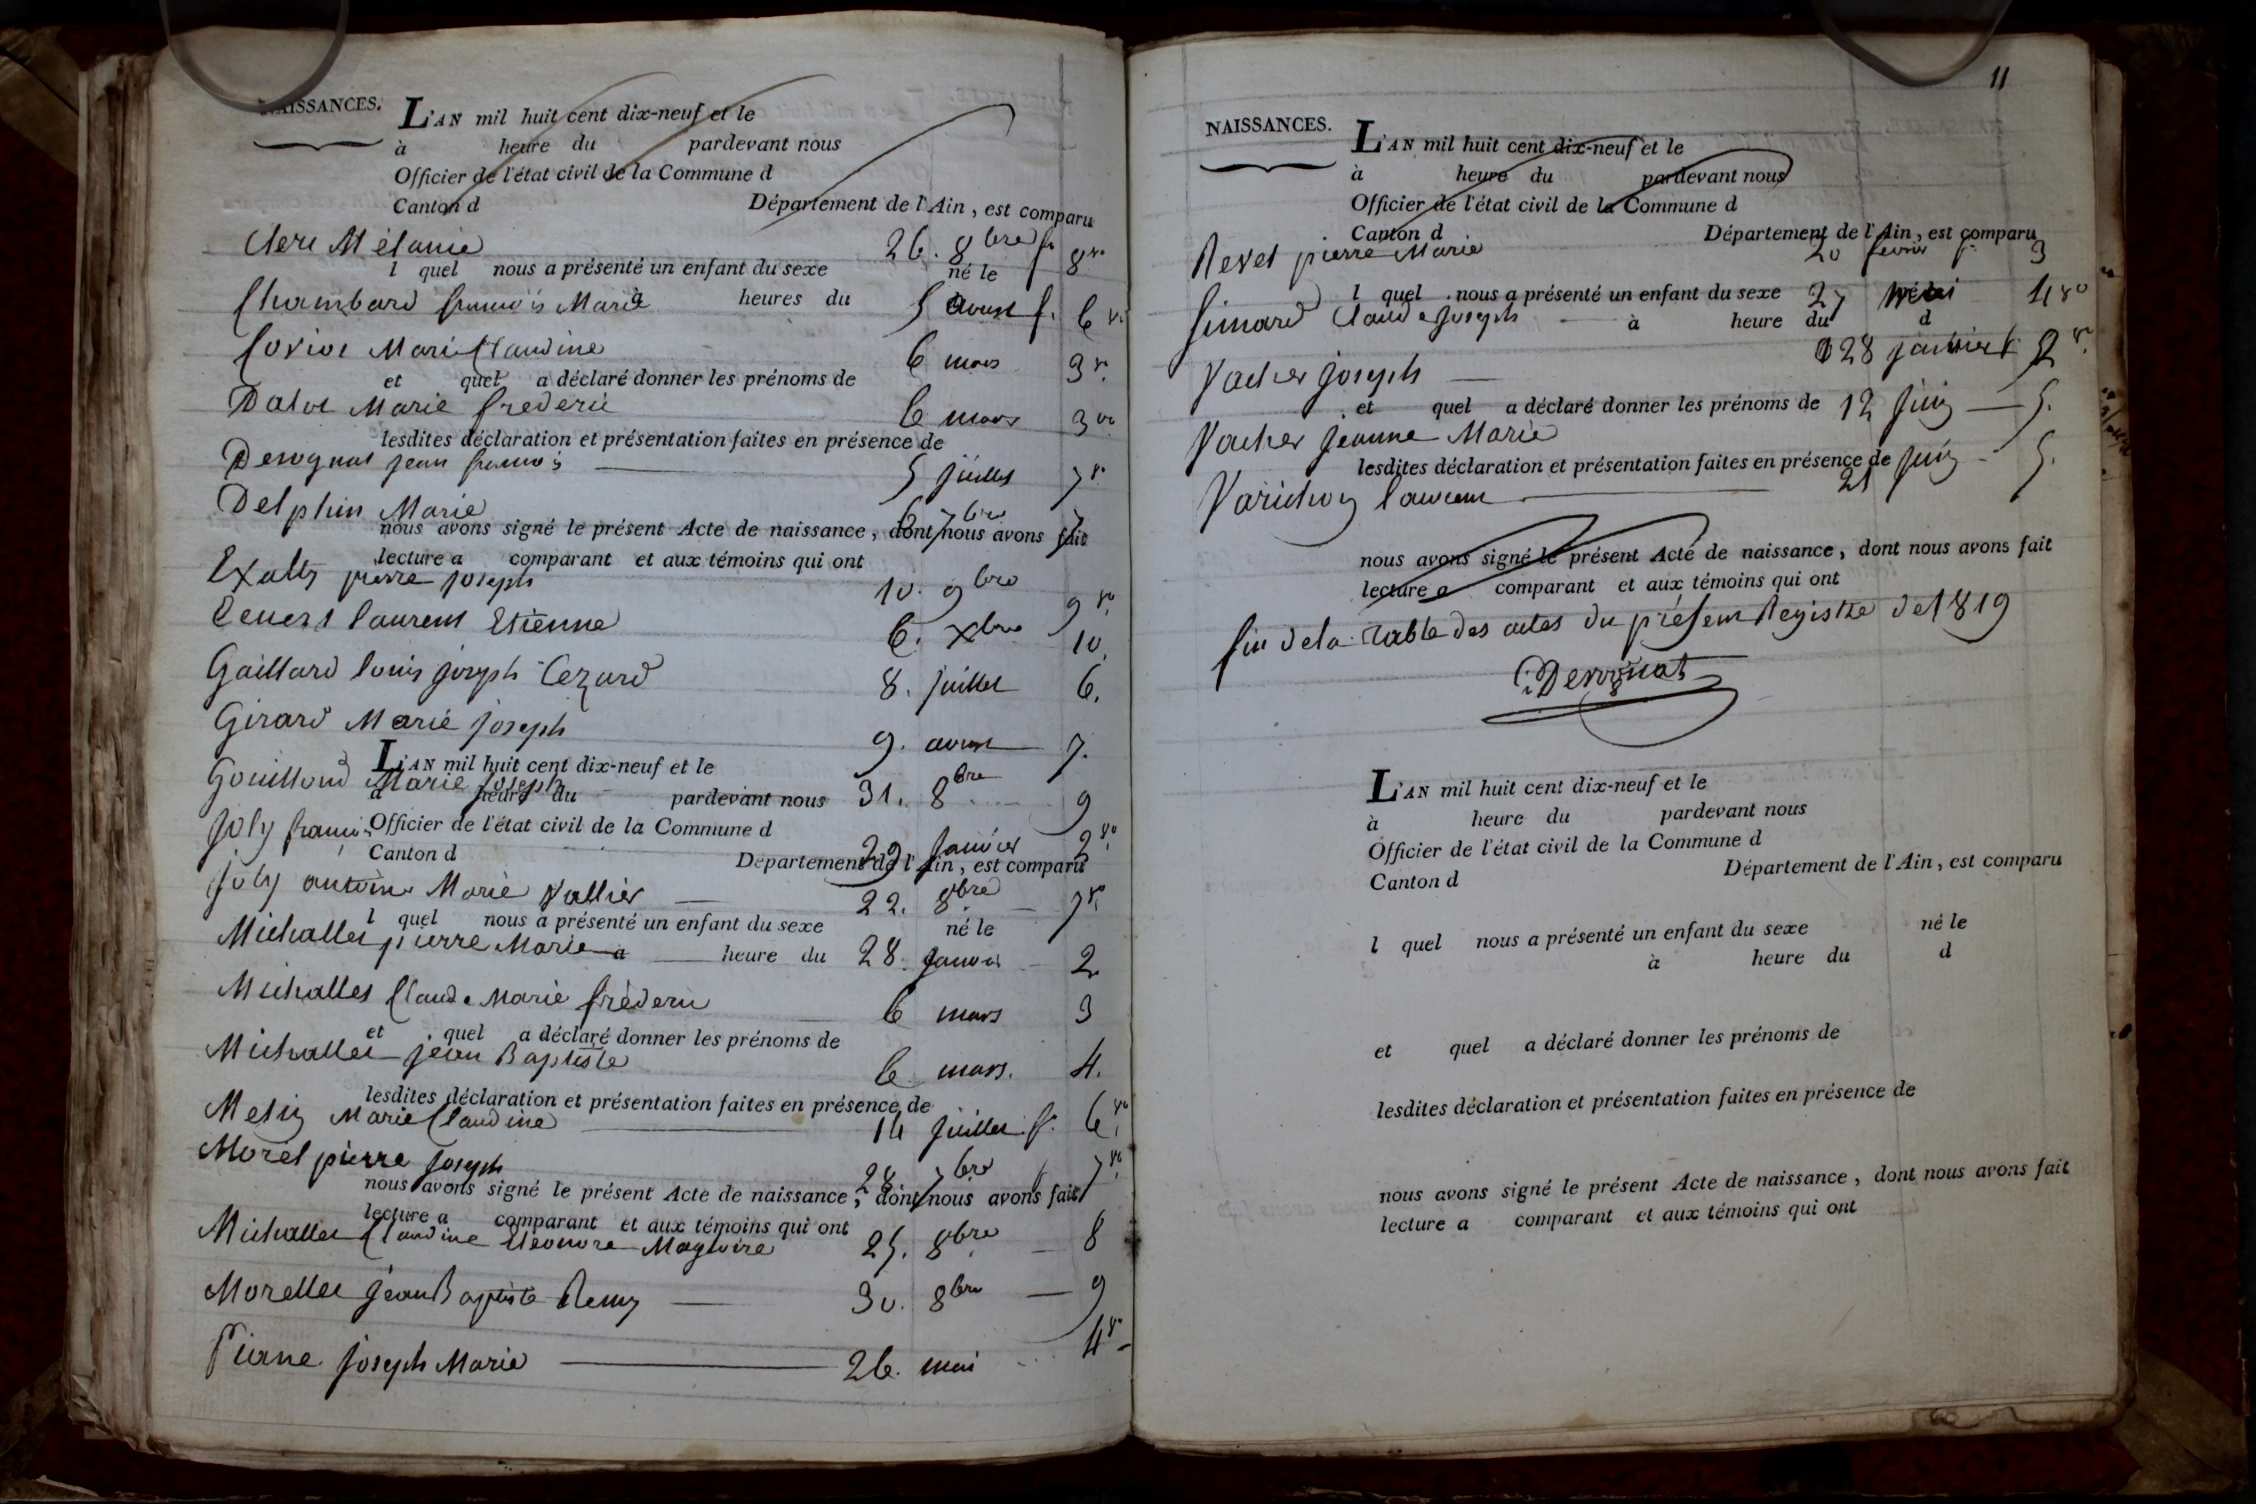 NAISSANCES.
L'AN mil huit cent dix-neuf et le
à heure du pardevant nous
Officier de l'état civil de la Commune d
Canton d Département de l'Ain, est comparu
Clerc Mélanie 26. 8bre f. 8 vo
l quel nous a présenté un enfant du sexe né le
Chambard françois Marie 5 Aoust f. 6 vo
à heures du
Marie Claudine 6 mars 3 vo
et quel a déclaré donner les prénoms de
Marie frederic 6 mars 3 vo
lesdites déclaration et présentation faites en présence de
Derognat jean françois 5 juillet 7 vo
Delphin Marie 6 7bre 7
nous avons signé le présent Acte de naissance, dont nous avons fait
lecture a comparant et aux témoins qui ont
pierre joseph 10. 9bre 9 vo
laurent Etienne 6. Xbre 10.
Gaillard louis joseph Cezard 8. juillet 6.
Girard Marie joseph 9. aoust 7.
L'AN mil huit cent dix-neuf et le
Gouilloud Marie Joseph 31. 8bre 9
à heure du pardevant nous
Officier de l'état civil de la Commune d
Joly françois 29 Janvier 2 vo
Canton d Département de l'Ain, est comparu
Joly antoine Marie Vallier 22. 8bre 7 vo
l quel nous a présenté un enfant du sexe né le
Michallet pierre Marie 28. Janvier 2
à heure du
Michallet Claude Marie fréderic 6 mars 3
et quel a déclaré donner les prénoms de
Michallet jean Baptiste 6 mars. 4.
lesdites déclaration et présentation faites en présence de
Marie Claudine 14 juillet f. 6 vo
Morel pierre Joseph 28 7bre f 7 vo
nous avons signé le présent Acte de naissance, dont nous avons fait
lecture a comparant et aux témoins qui ont
Michallet Claudine Eleonore 25. 8bre 8
Morellet jean Baptiste Remy 30. 8bre 9
joseph Marie 26. mai 4 vo
11
NAISSANCES.
L'AN mil huit cent dix-neuf et le
à heure du pardevant nous
Officier de l'état civil de la Commune d
Canton d Département de l'Ain, est comparu
Revel pierre Marie 20 fevrier f. 3
l quel nous a présenté un enfant du sexe né le
Simard Claude Joseph 27 mai 4 vo
à heure du d
Vacher joseph 28 janvier f 2 vo
et quel a déclaré donner les prénoms de
Vacher jeanne Marie 12 juin 5.
lesdites déclaration et présentation faites en présence de
Varichon laurent 21 juin 5.
nous avons signé le présent Acte de naissance, dont nous avons fait
lecture a comparant et aux témoins qui ont
fin de la Table des actes du présent Registre de 1819
Derognat
L'AN mil huit cent dix-neuf et le
à heure du pardevant nous
Officier de l'état civil de la Commune d
Canton d Département de l'Ain, est comparu
l quel nous a présenté un enfant du sexe né le
à heure du d
et quel a déclaré donner les prénoms de
lesdites déclaration et présentation faites en présence de
nous avons signé le présent Acte de naissance, dont nous avons fait
lecture a comparant et aux témoins qui ont